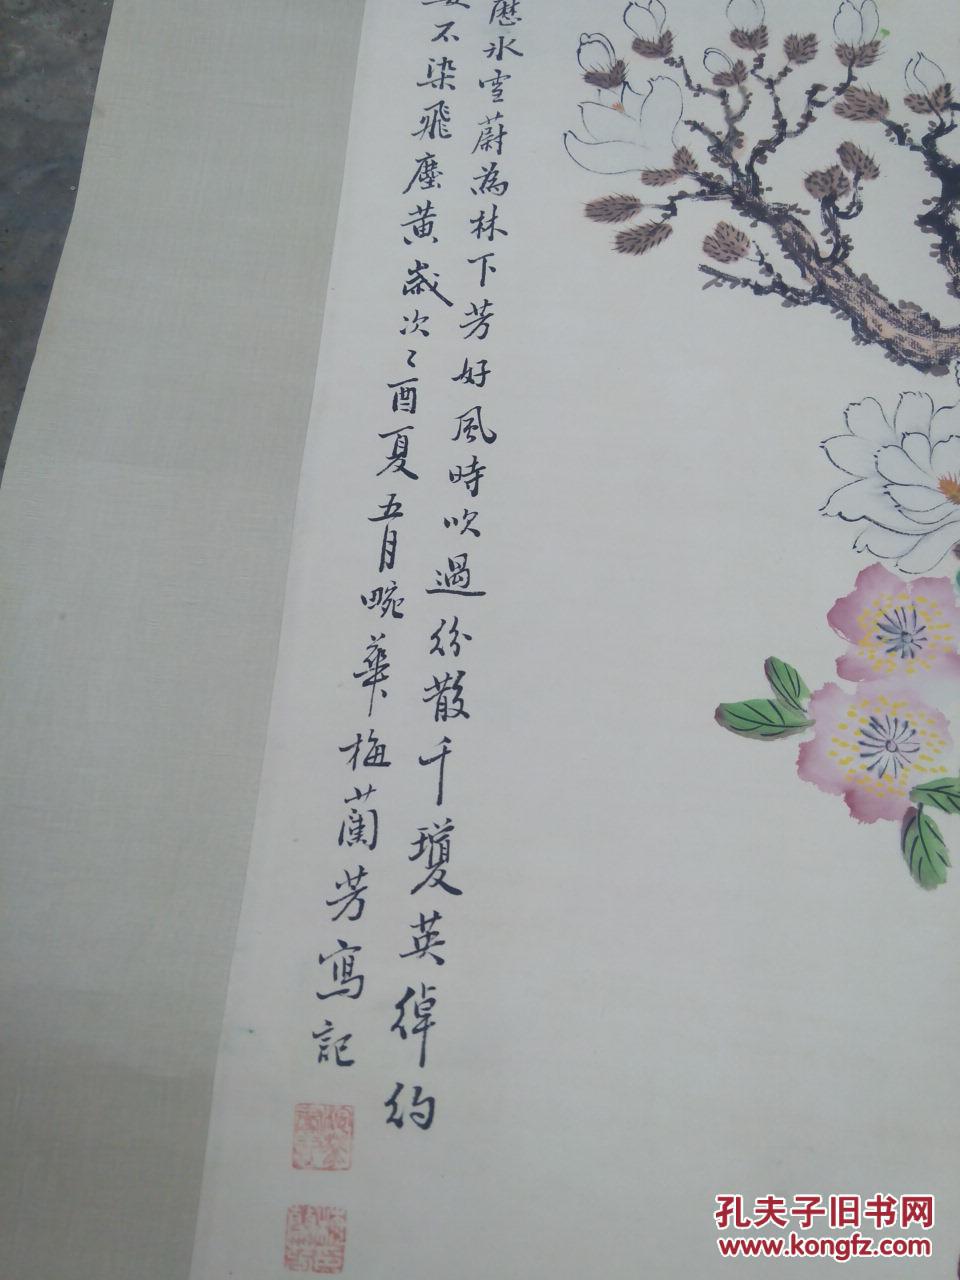 歷氷雪蔚為林下芳好風時吹過紛散千瓊英綽約
不染飛塵黃歲次乙酉夏五月畹華梅蘭芳寫記
孔夫子旧书网
www.kongfz.com